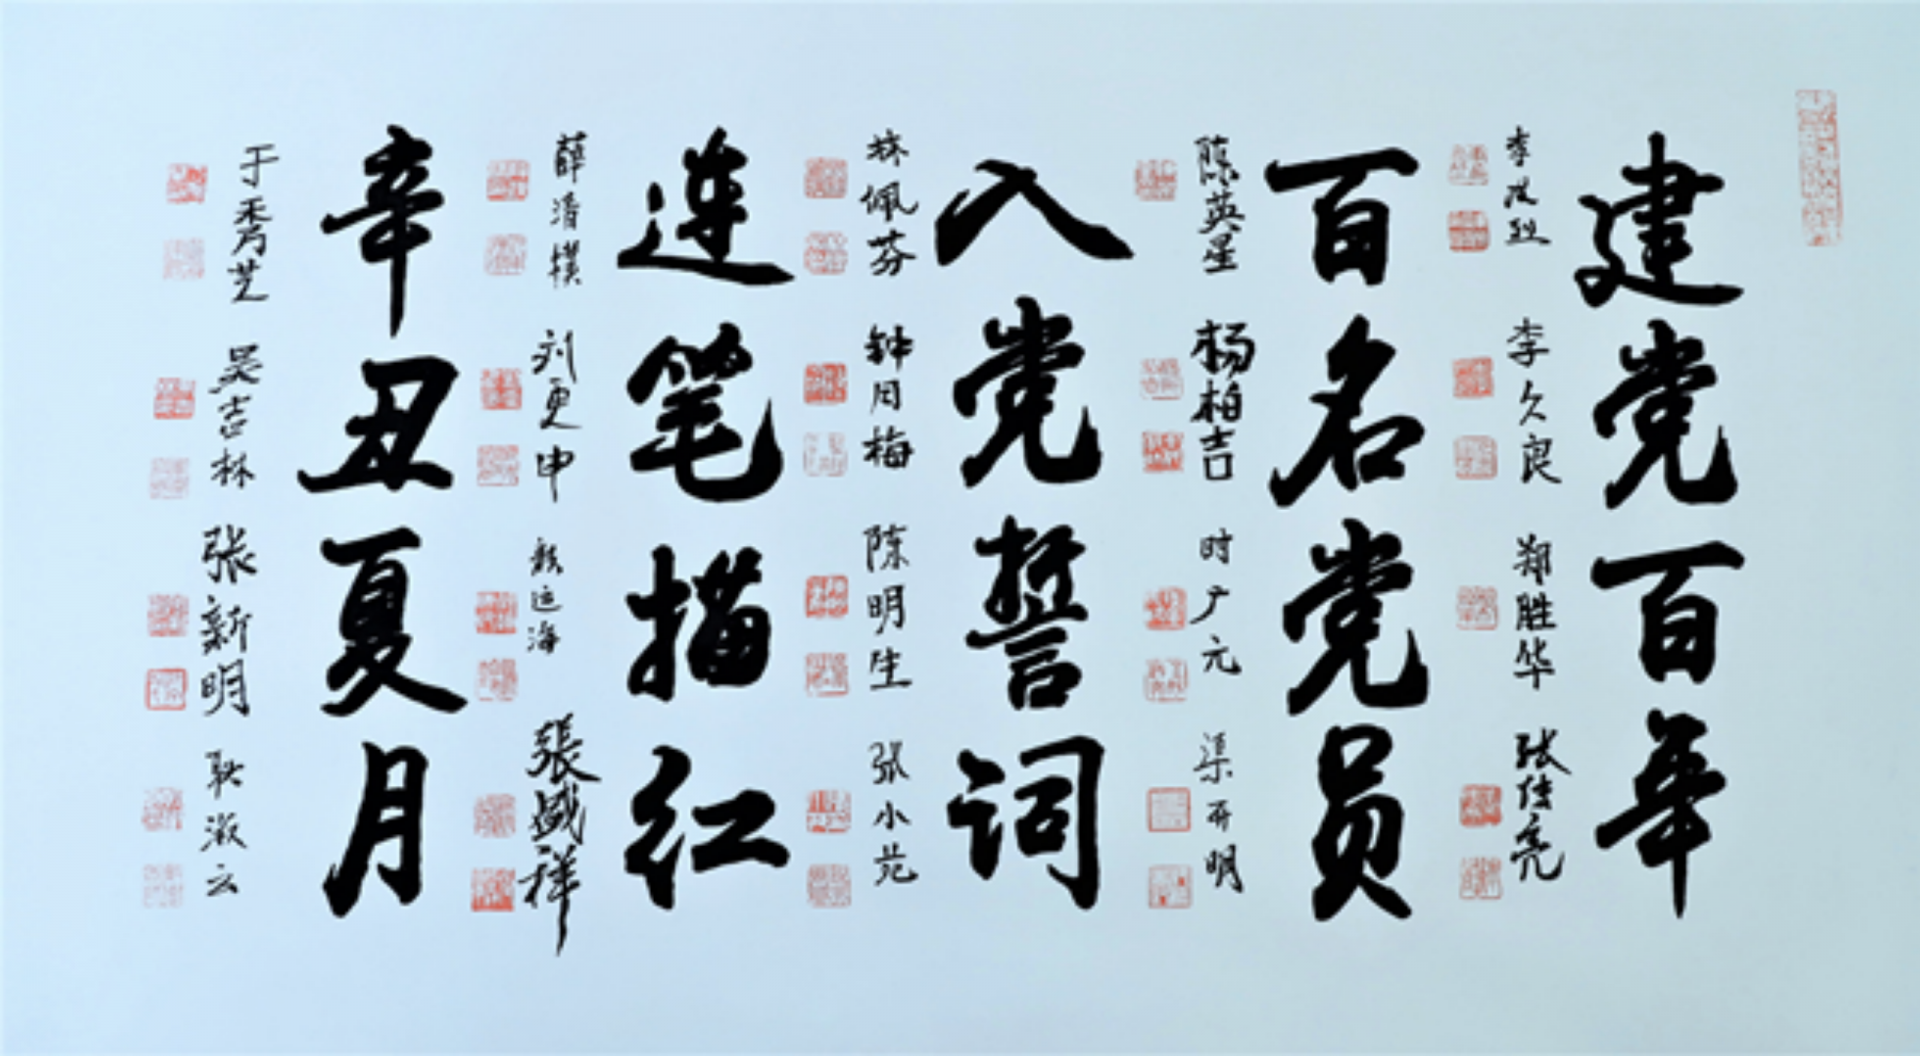 建党百年
李久良 郑胜华 张传亮
百名党员
陈英星 杨柏吉 时广元 渠开明
入党誓词
林佩芬 钟月梅 陈明生 张小苑
连笔描红
薛清朴 刘更申 运海 張盛祥
辛丑夏月
于秀芝 吴吉林 张新明 耿淑云